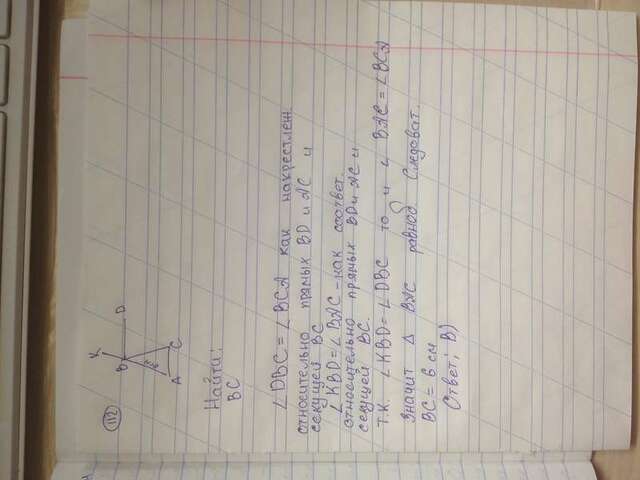 112
K
B
D
6 см
A
C
Найти:
BC
∠DBC = ∠BCA как накрестлеж.
относительно прямых BD и AC и
секущей BC
∠KBD = ∠BAC - как соответ.
относительно прямых BD и AC и
секущей BC.
Т.К. ∠KBD = ∠DBC то и ∠ BAC = ∠BCA
Значит Δ BAC равноб Следоват.
BC = 6 см
Ответ: В)